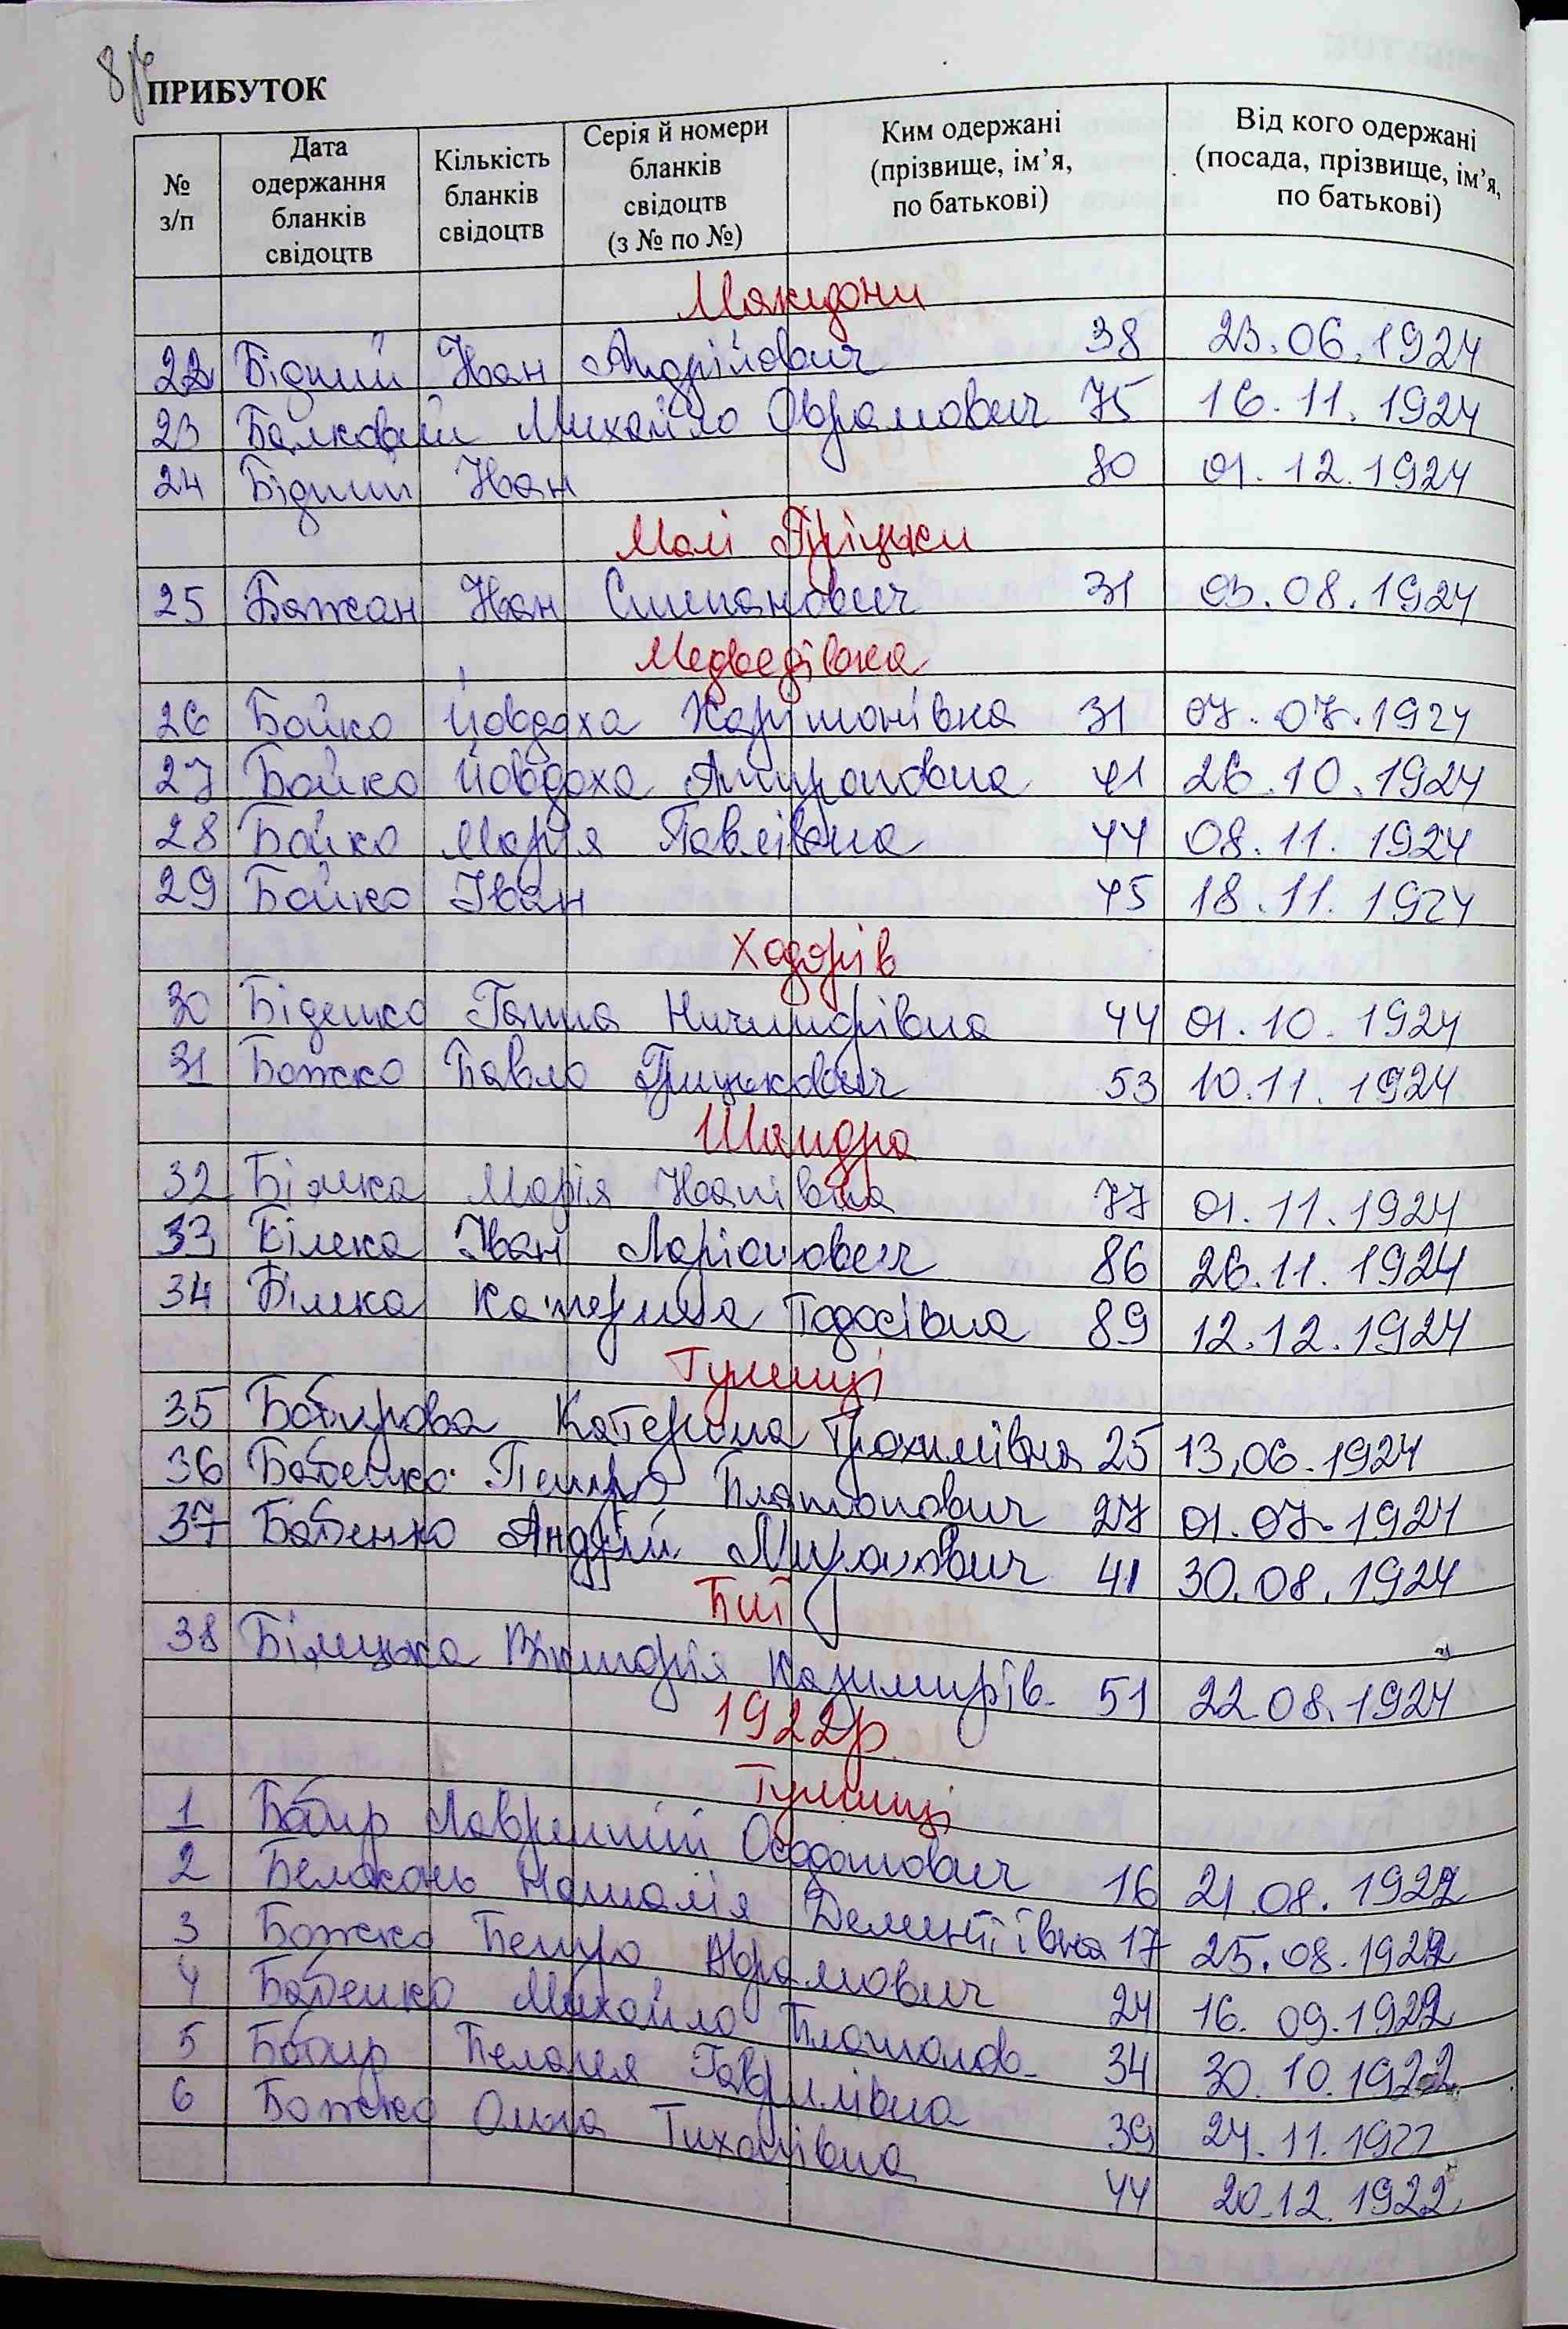 8
ПРИБУТОК
№ з/п
Дата одержання бланків свідоцтв
Кількість бланків свідоцтв
Серія й номери бланків свідоцтв (з № по №)
Ким одержані (прізвище, ім’я, по батькові)
Від кого одержані (посада, прізвище, ім’я, по батькові)
Македони
22 Бідний Іван Андрійович 38 23.06.1924
23 Балковий Михайло Оврамович 75 16.11.1924
24 Бідний Іван 80 01.12.1924
Малі Пріцьки
25 Бажан Іван Степанович 31 03.08.1924
Медведівка
26 Бойко Йовдоха Харитонівна 31 07.07.1924
27 Бойко Йовдоха 41 26.10.1924
28 Бойко Марія Павлівна 44 08.11.1924
29 Бойко Іван 45 18.11.1924
Ходорів
30 Біденко Ганна Ничипорівна 44 01.10.1924
31 Божко Павло Грицькович 53 10.11.1924
Шандра
32 Білека Марія Іванівна 77 01.11.1924
33 Білека Іван Ларіонович 86 26.11.1924
34 Білека Катерина Тодосівна 89 12.12.1924
Тулинці
35 Бобирова Катерина Трохимівна 25 13,06.1924
36 Бабенко Петро Платонович 27 01.07.1924
37 Бабенко Андрій Миронович 41 30.08.1924
Пії
38 Білецька Вікторія Казимирів- 51 22.08.1924
1922р.
Тулинці
1 Бобир Лаврентій Осадотович 16 21.08.1922
2 Белоконь Наталія Дементіївна 17 25.08.1922
3 Божко Петро Аврамович 24 16.09.1922
4 Бабенко Михайло Платонов- 34 30.10.1922
5 Бобир Пелагея Гаврилівна 39 24.11.1922
6 Божко Ольга Тихонівна 44 20.12.1922